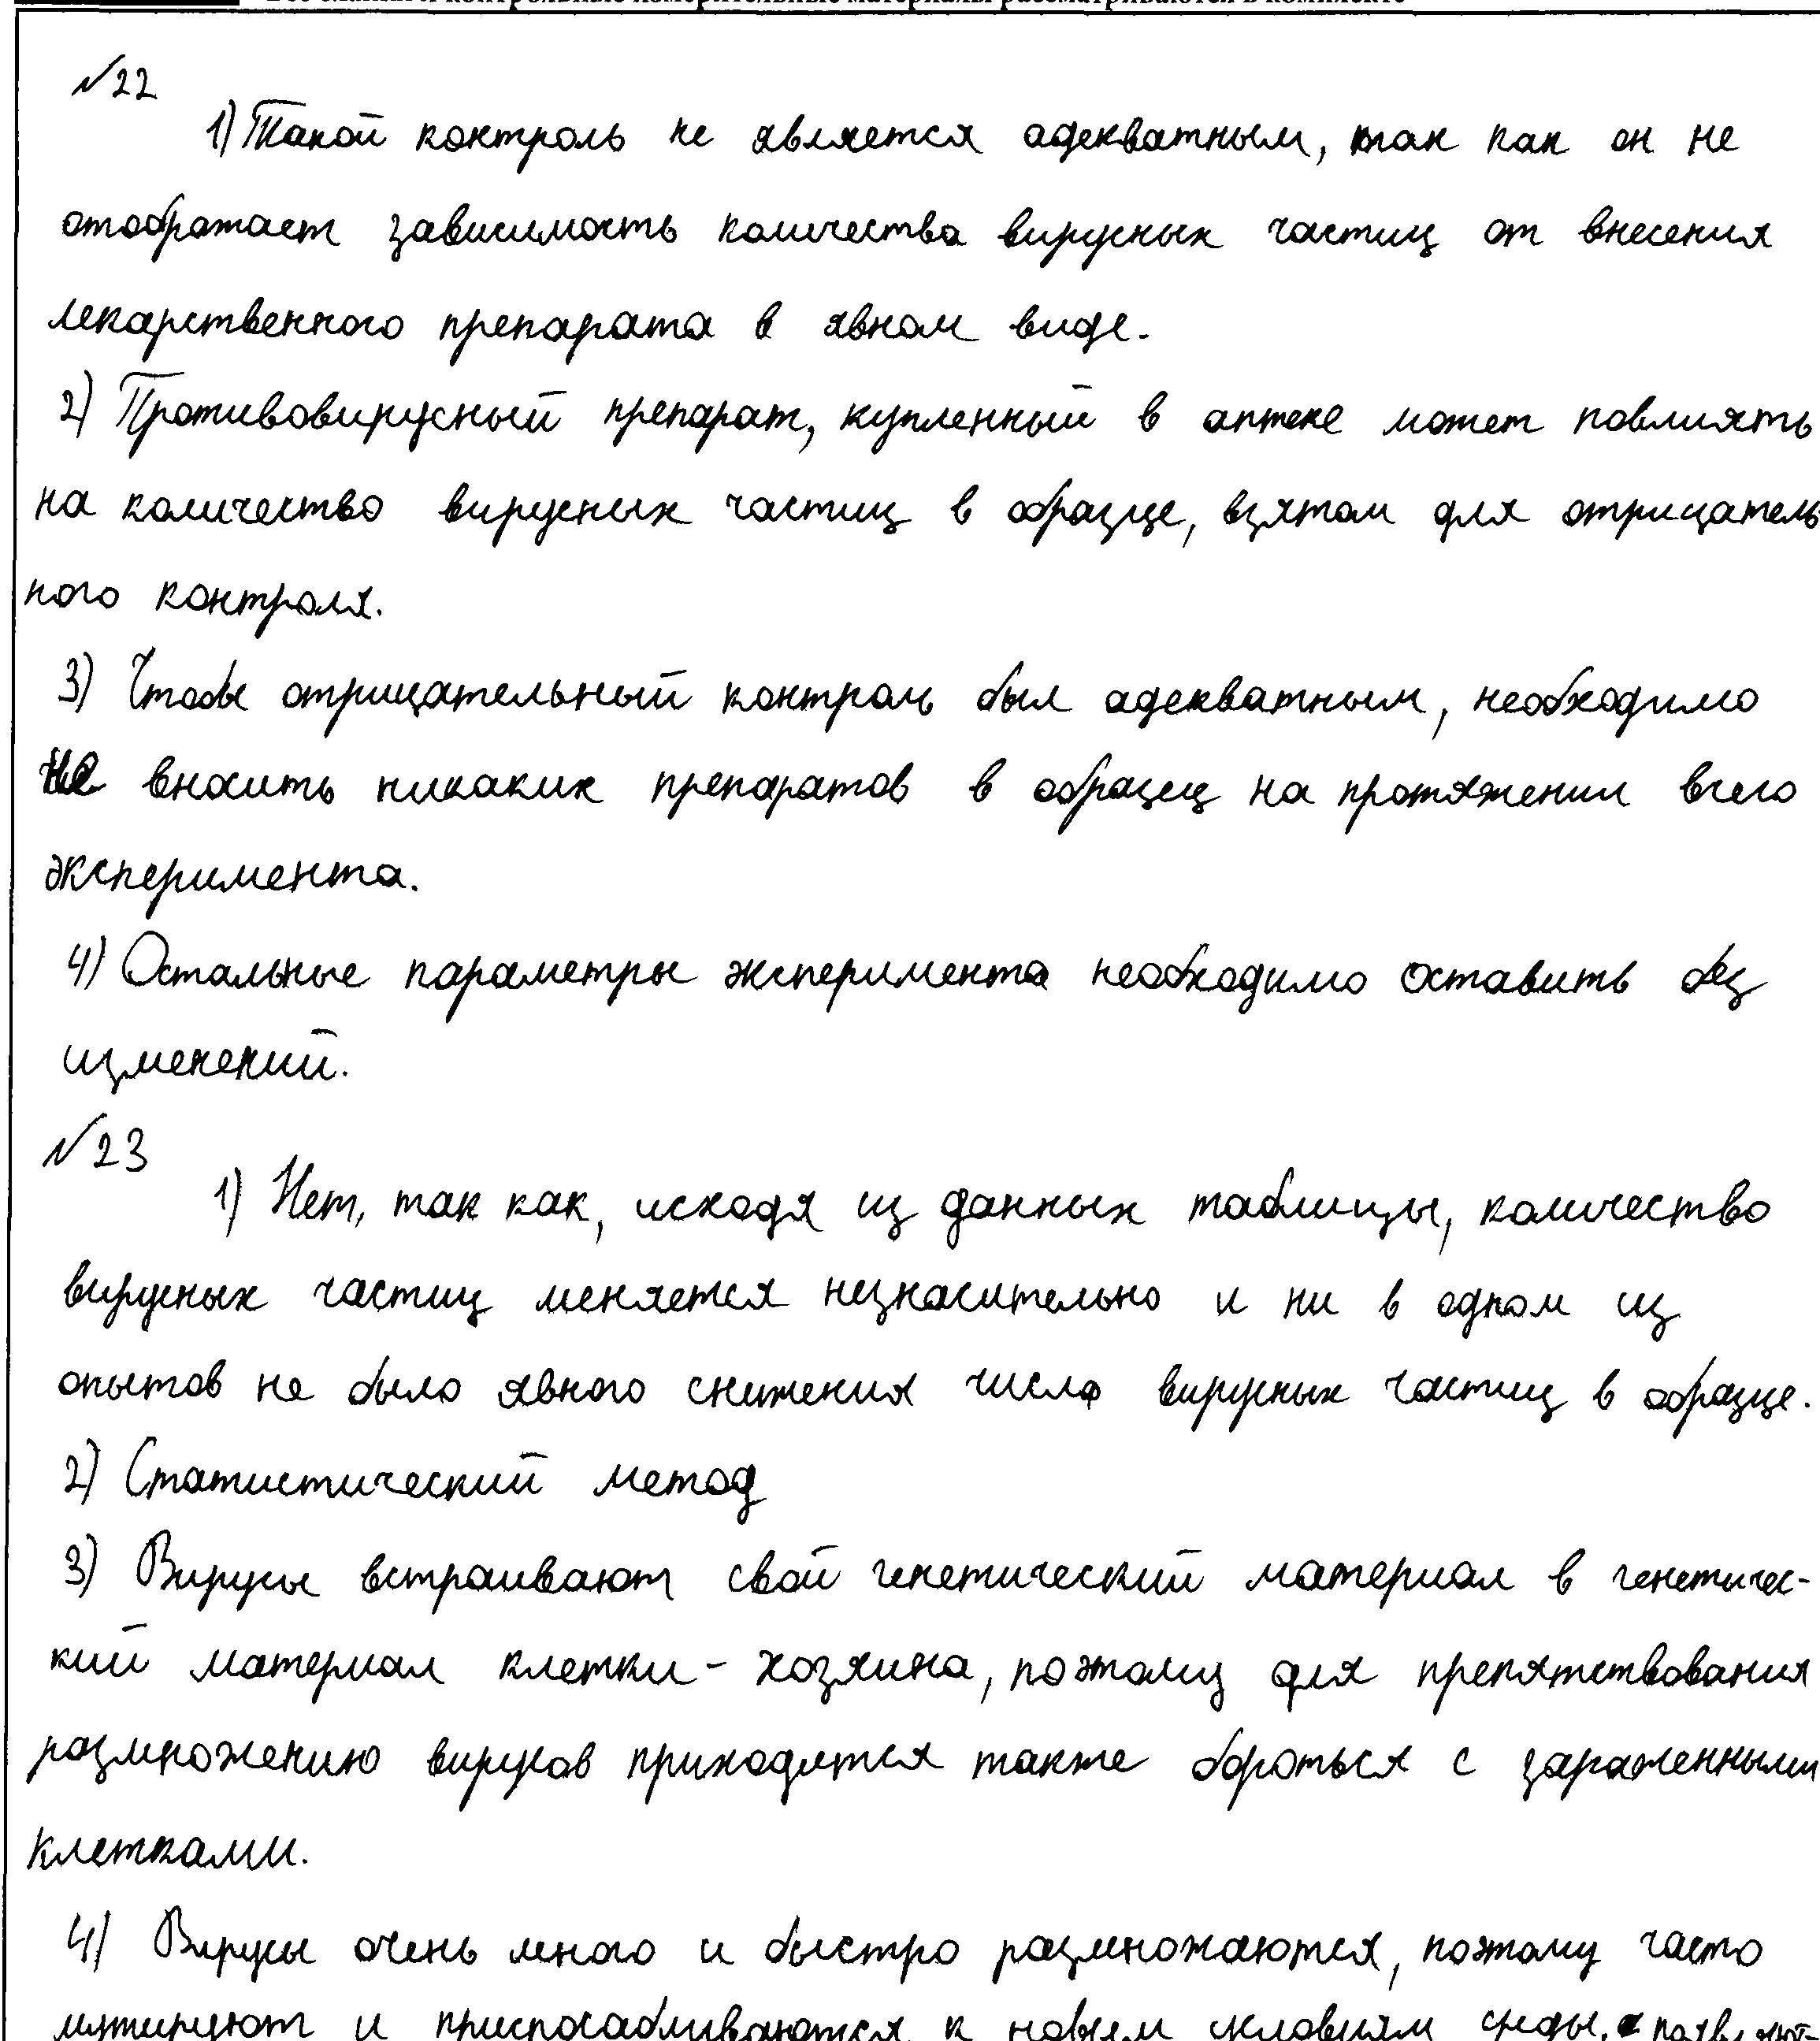 Все бланки и контрольные измерительные материалы рассматриваются в комплекте
№22
1) Такой контроль не является адекватным, так как он не
отображает зависимость количества вирусных частиц от внесения
лекарственного препарата в явном виде.
2) Противовирусный препарат, купленный в аптеке может повлиять
на количество вирусных частиц в образце, взятом для отрицатель
ного контроля.
3) Чтобы отрицательный контроль был адекватным, необходимо
не вносить никаких препаратов в образец на протяжении всего
эксперимента.
4) Остальные параметры эксперимента необходимо оставить без
изменений.
№23
1) Нет, так как, исходя из данных таблицы, количество
вирусных частиц меняется незначительно и ни в одном из
опытов не было явного снижения числа вирусных частиц в образце.
2) Статистический метод
3) Вирусы встраивают свой генетический материал в генетичес-
кий материал клетки-хозяина, поэтому для препятствования
размножению вирусов приходится также бороться с зараженными
клетками.
4) Вирусы очень много и быстро размножаются, поэтому часто
мутируют и приспосабливаются к новым условиям среды,